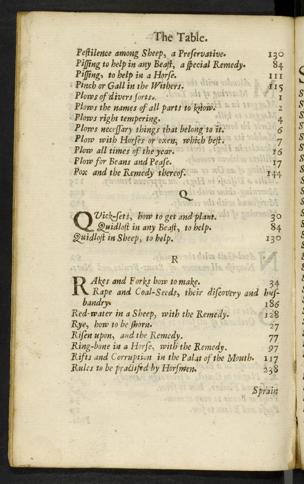 The Table.
Pestilence among Sheep, a Preservative. 130
Pissing to help in any Beast, a special Remedy. 84
Pissing, to help in a Horse. 111
Pinch or Gall in the Withers. 115
Plows of divers sorts. 1
Plows the names of all parts to know. 2
Plows right tempering. 4
Plows necessary things that belong to it. 6
Plow with Horses or oxen, which best. 7
Plow all times of the year. 16
Plow for Beans and Pease. 17
Pox and the Remedy thereof. 144
Q
QUick-sets, how to get and plant. 30
Quidlost in any Beast, to help. 84
Quidlost in Sheep, to help. 130
R
RAkes and Forks how to make. 34
Rape and Coal-Seeds, their discovery and hus-
bandry. 186
Red-water in a Sheep, with the Remedy. 128
Rye, how to be shorn. 27
Risen upon, and the Remedy. 77
Ring-bone in a Horse, with the Remedy. 97
Rifts and Corruption in the Palat of the Mouth. 117
Rules to be practised by Horsmen. 238
Sprain